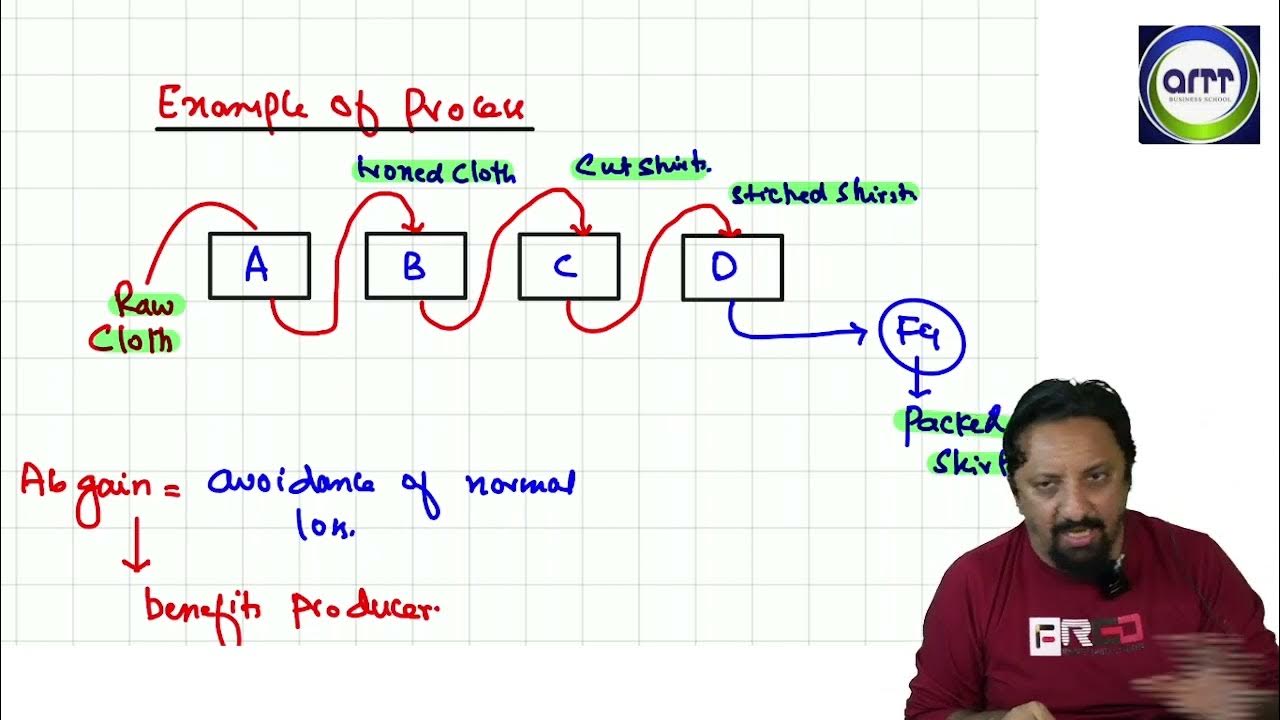 Example of Process
artt
BUSINESS SCHOOL
Ironed Cloth
Cut Shirts.
Stiched Shirsts
A
B
C
D
Raw
Cloth
FG
Packed
Skirt
Ab gain = avoidance of normal
loss.
benefits producer.